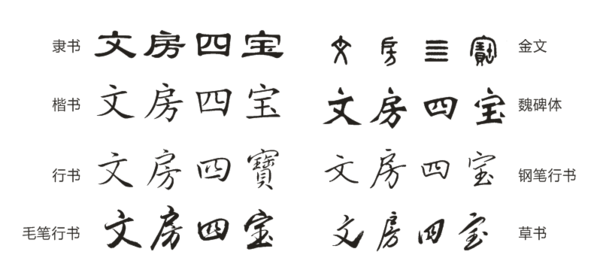 隶书 文房四宝 文房四寶 金文
楷书 文房四宝 文房四宝 魏碑体
行书 文房四寶 文房四宝 钢笔行书
毛笔行书 文房四宝 文房四宝 草书